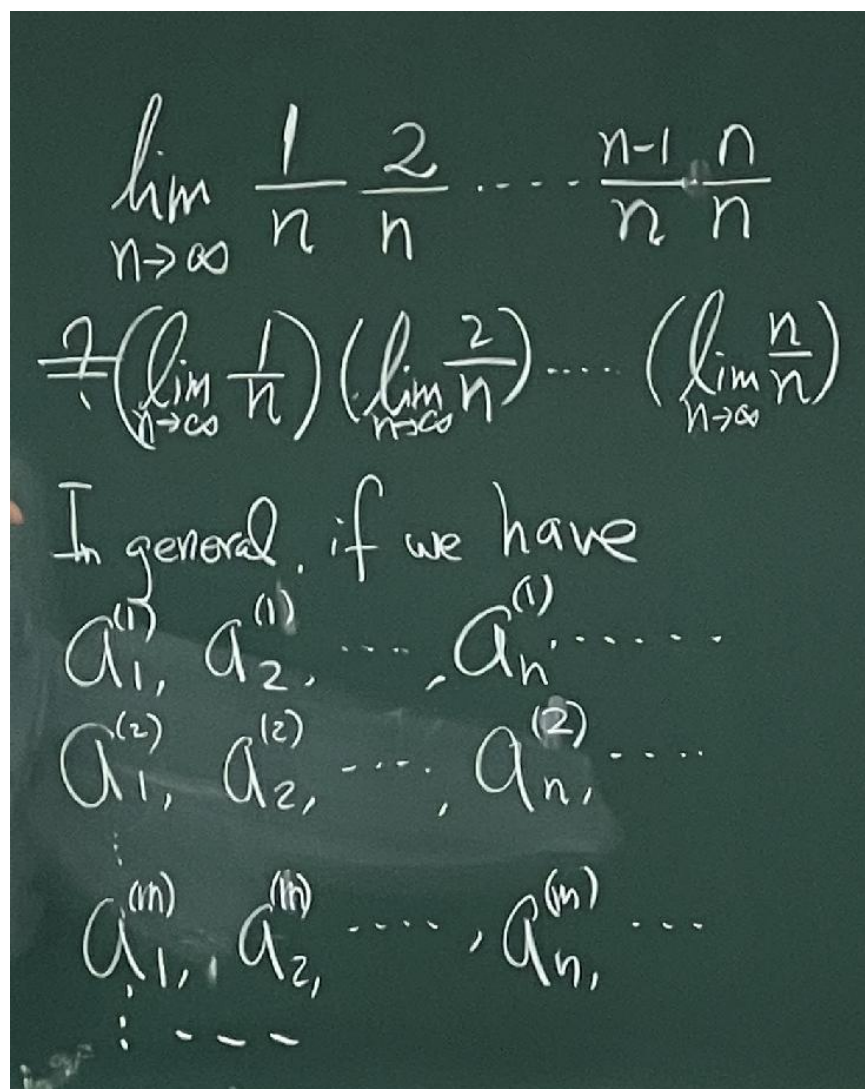 lim_{n→∞} \frac{1}{n} \frac{2}{n} ····· \frac{n-1}{n} · \frac{n}{n}
\stackrel{?}{=} (lim_{n→∞} \frac{1}{n}) (lim_{n→∞} \frac{2}{n}) ····· (lim_{n→∞} \frac{n}{n})
In general, if we have
a_1^{(1)}, a_2^{(1)}, ····, a_n^{(1)} ······
a_1^{(2)}, a_2^{(2)}, ····, a_n^{(2)}, ····
⋮
a_1^{(m)}, a_2^{(m)}, ····, a_n^{(m)}, ···
⋮ - - -